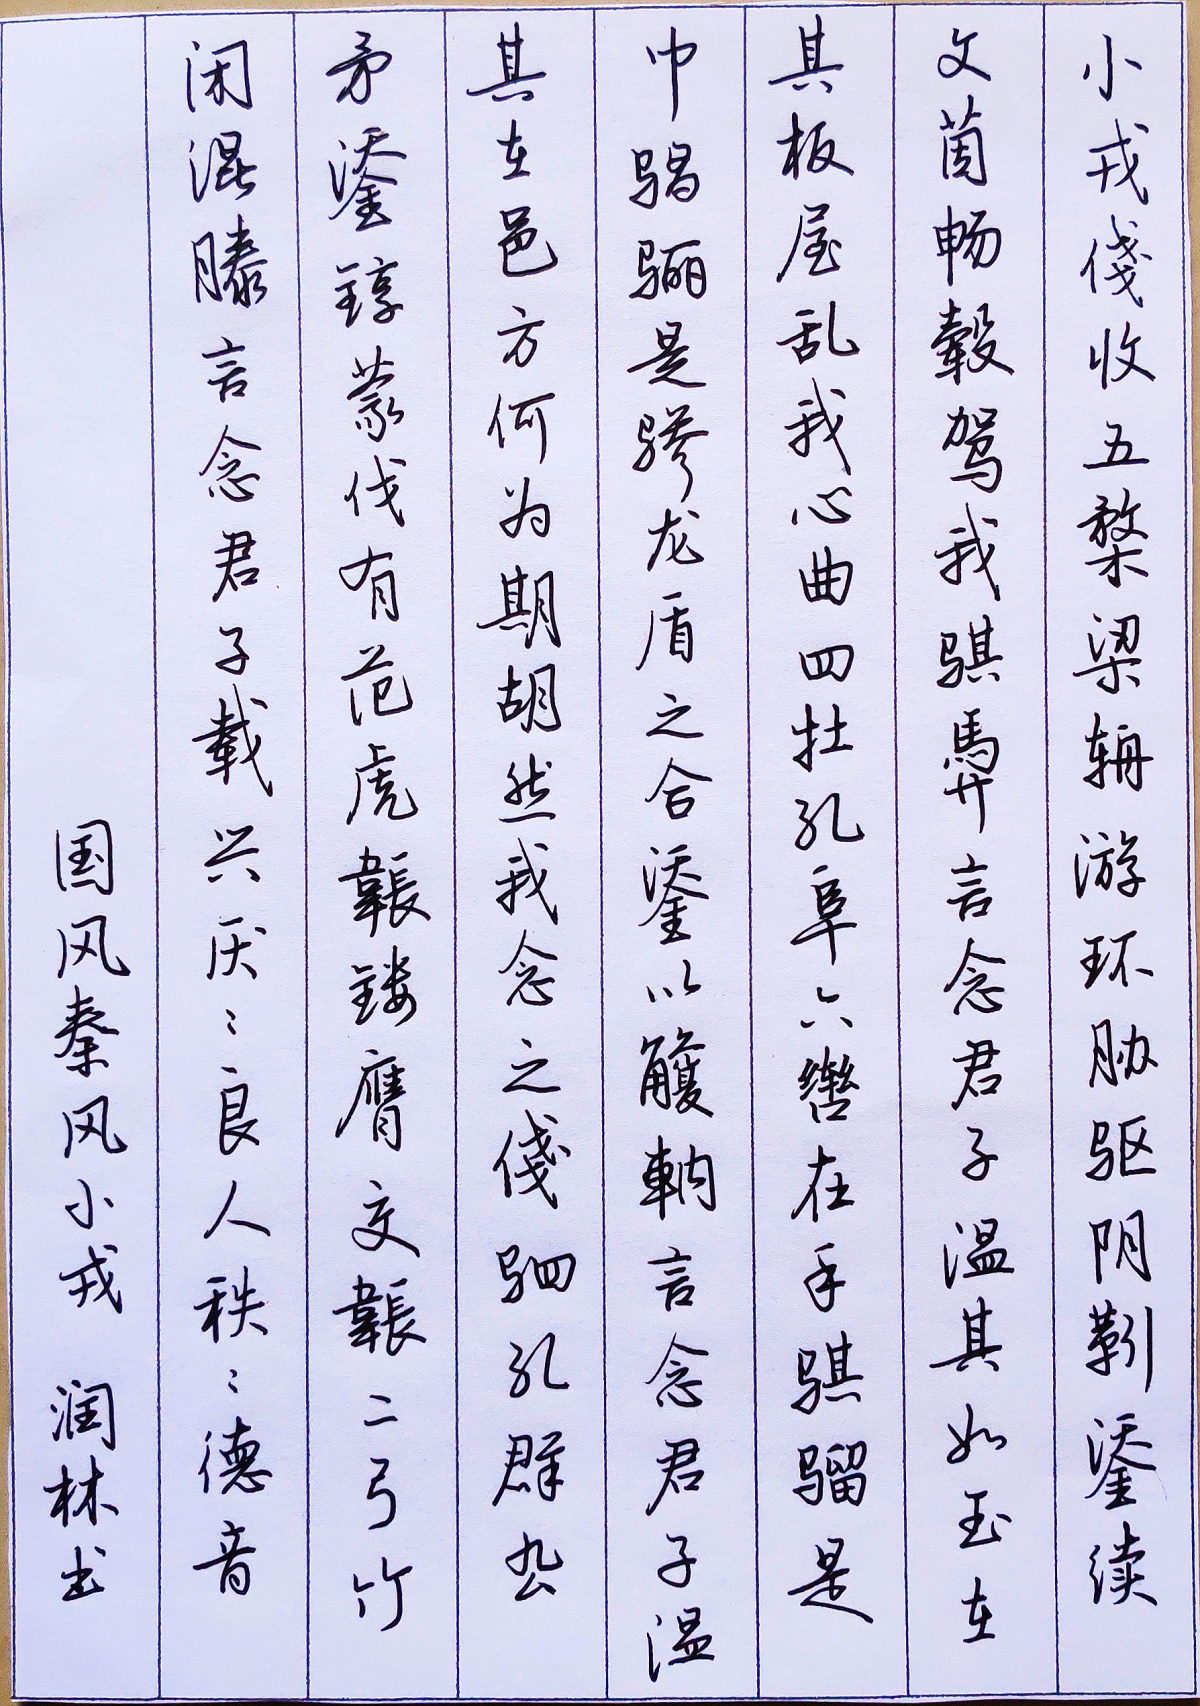 小戎俴收五楘梁辀游环胁驱阴靷鋈续
文茵畅毂驾我骐馵言念君子温其如玉在
其板屋乱我心曲四牡孔阜六辔在手骐骝是
中䯄骊是骖龙盾之合鋈以觼軜言念君子温
其在邑方何为期胡然我念之俴驷孔群厹
矛鋈𬭚蒙伐有范虎韔镂膺交韔二弓竹
闭混滕言念君子载兴厌〻良人秩〻德音
国风秦风小戎 润林书